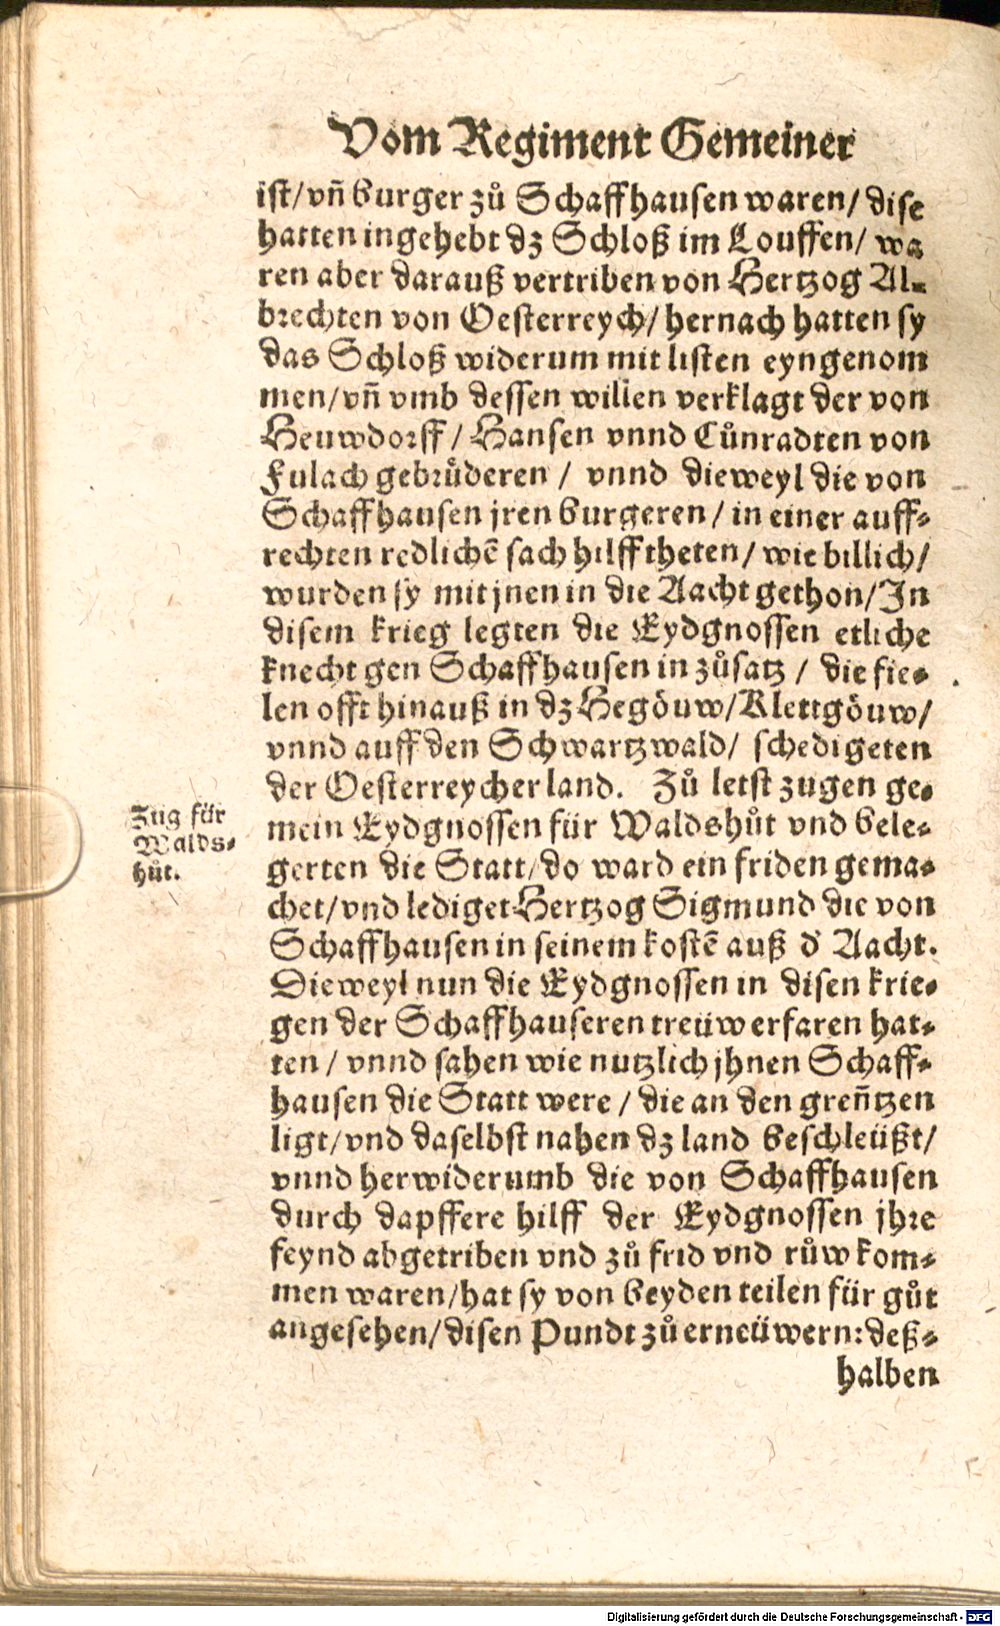 Vom Regiment Gemeiner
ist/ vñ burger zů Schaffhausen waren/ dise
hatten ingehebt dz Schloß im Louffen/ wa
ren aber darauß vertriben von Hertzog Al⸗
brechten von Oesterreych/ hernach hatten sy
das Schloß widerum mit listen eyngenom
men/ vñ vmb dessen willen verklagt der von
Heuwdorff/ Hansen vnnd Cůnradten von
Fulach gebrůderen / vnnd dieweyl die von
Schaffhausen jren burgeren / in einer auff⸗
rechten redlichẽ sach hilff theten/ wie billich/
wurden sy mit jnen in die Aacht gethon/ In
disem krieg legten die Eydgnossen etliche
knecht gen Schaffhausen in zůsatz / die fie⸗
len offt hinauß in dz Hegöuw/ Klettgöuw/
vnnd auff den Schwartzwald/ schedigeten
der Oesterreycher land. Zů letst zugen ge⸗
mein Eydgnossen für Waldshůt vnd bele⸗
gerten die Statt/ do ward ein friden gema⸗
chet/ vnd lediget Hertzog Sigmund die von
Schaffhausen in seinem kostẽ auß d' Aacht.
Dieweyl nun die Eydgnossen in disen krie⸗
gen der Schaffhauseren treüw erfaren hat⸗
ten / vnnd sahen wie nutzlich jhnen Schaff⸗
hausen die Statt were / die an den greñtzen
ligt/ vnd daselbst nahen dz land beschleüßt/
vnnd herwiderumb die von Schaffhausen
durch dapffere hilff der Eydgnossen jhre
feynd abgetriben vnd zů frid vnd růw kom⸗
men waren/ hat sy von beyden teilen für gůt
angesehen/ disen Pundt zů erneüwern: deß⸗
halben
Zug für
Walds⸗
hůt.
Digitalisierung gefördert durch die Deutsche Forschungsgemeinschaft - DFG